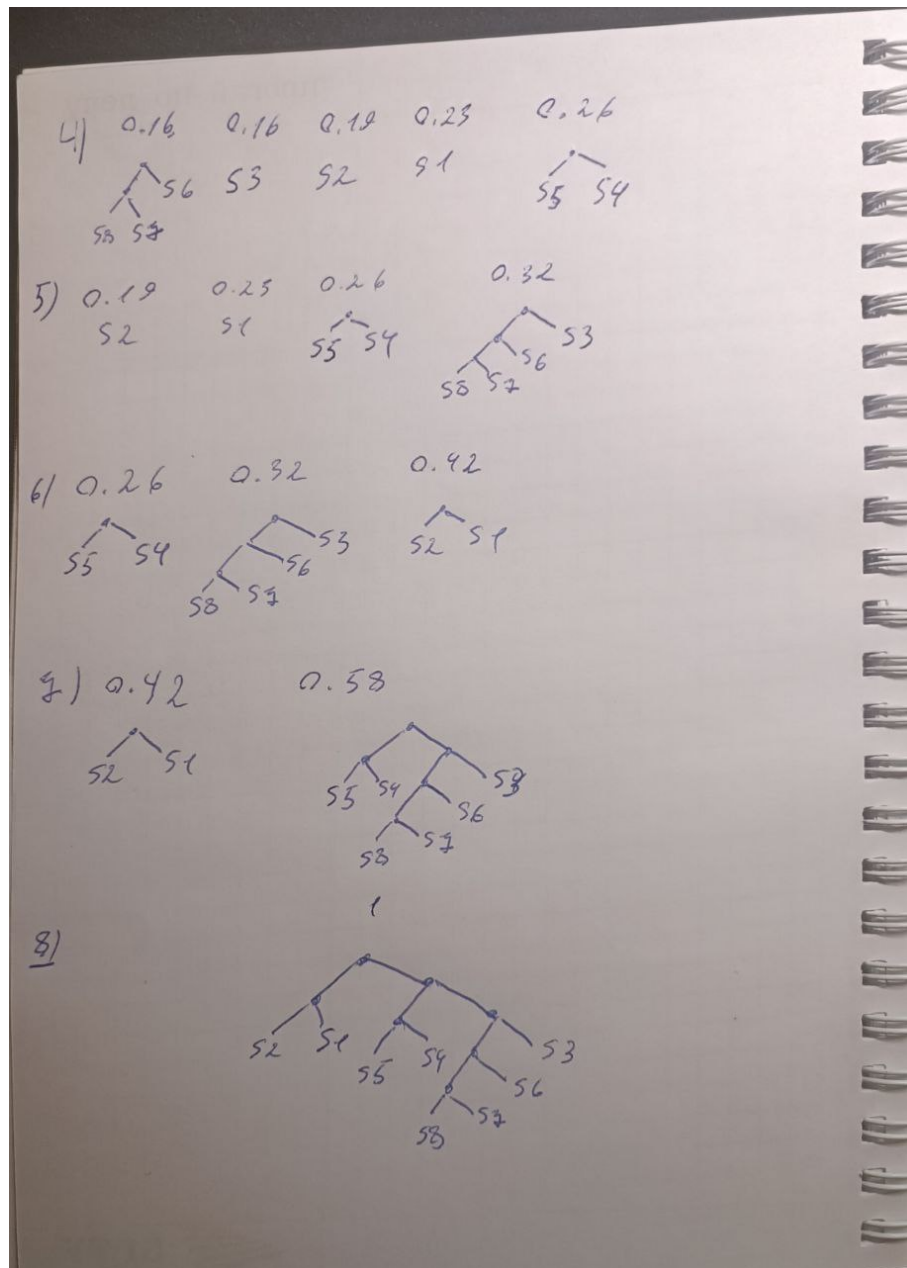 4) 0.16 0.16 0.19 0.23 0.26
S6 S3 S2 S1 S5 S4
S8 S7
5) 0.19 0.23 0.26 0.32
S2 S1 S5 S4 S3
S6
S8 S7
6) 0.26 0.32 0.42
S5 S4 S3 S2 S1
S6
S8 S7
7) 0.42 0.58
S2 S1 S5 S4 S3
S6
S8 S7
1
8)
S2 S1 S5 S4 S3
S6
S8 S7